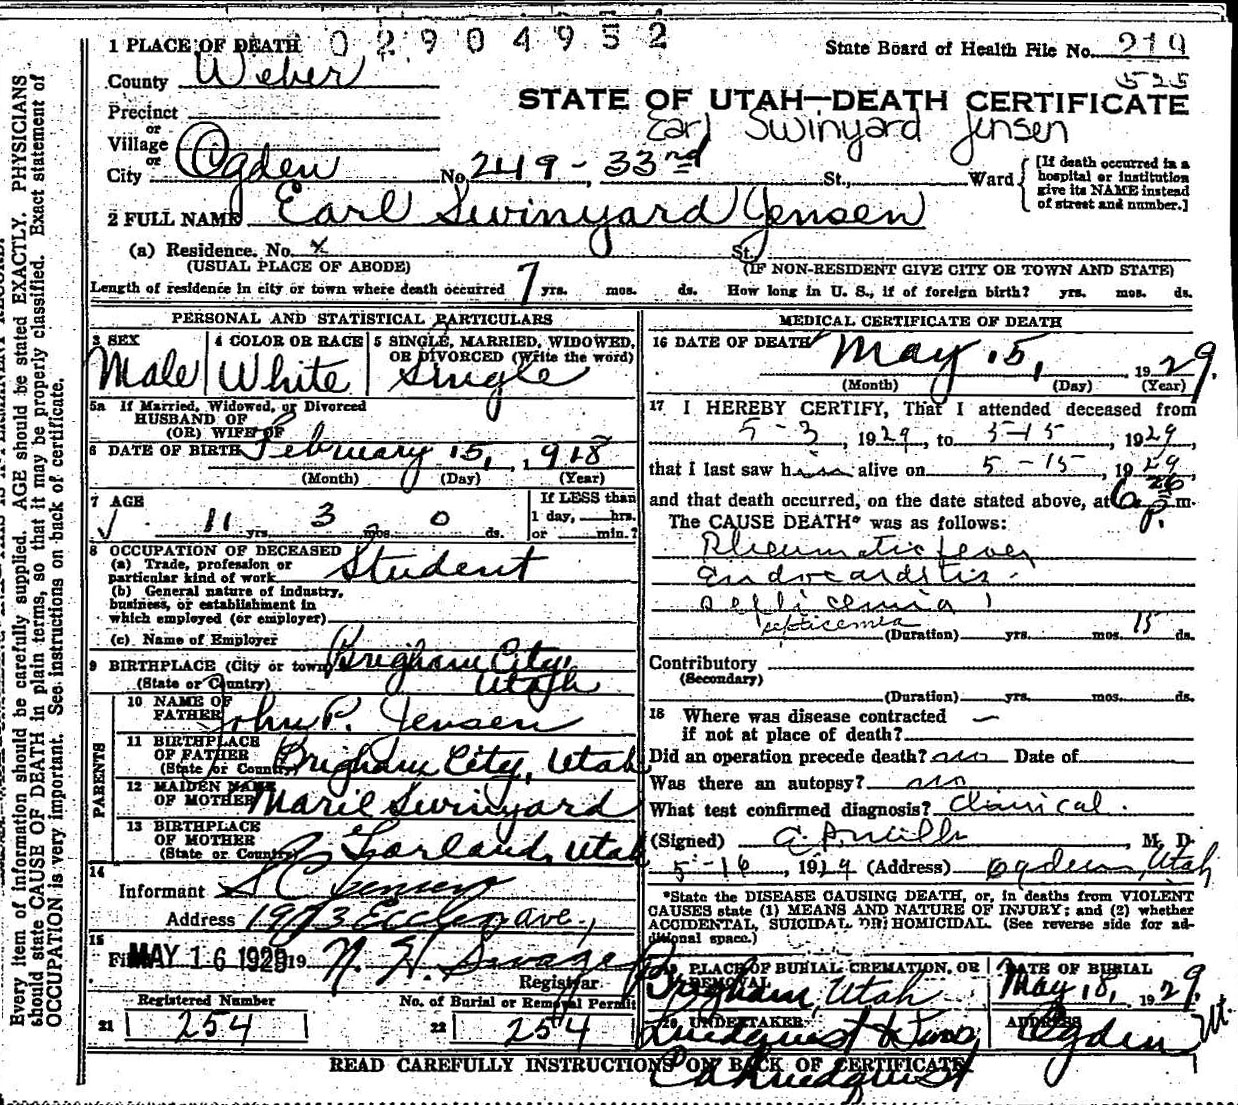 1 PLACE OF DEATH 02904952
State Board of Health File No. 219
525
County Weber
STATE OF UTAH—DEATH CERTIFICATE
Precinct
Earl Swinyard Jensen
or
Village
or
City Ogden No. 249 - 33rd St., Ward
[If death occurred in a hospital or institution give its NAME instead of street and number.]
2 FULL NAME Earl Swinyard Jensen
(a) Residence. No. x St.
(USUAL PLACE OF ABODE) (IF NON-RESIDENT GIVE CITY OR TOWN AND STATE)
Length of residence in city or town where death occurred 7 yrs. mos. ds. How long in U. S., if of foreign birth? yrs. mos. ds.
PERSONAL AND STATISTICAL PARTICULARS
3 SEX Male
4 COLOR OR RACE White
5 SINGLE, MARRIED, WIDOWED, OR DIVORCED (Write the word) Single
5a If Married, Widowed, or Divorced
HUSBAND OF
(OR) WIFE OF
6 DATE OF BIRTH February 15, 1918
(Month) (Day) (Year)
7 AGE 11 yrs. 3 mos. 0 ds.
If LESS than 1 day, hrs. or min.?
8 OCCUPATION OF DECEASED
(a) Trade, profession or particular kind of work Student
(b) General nature of industry, business, or establishment in which employed (or employer)
(c) Name of Employer
9 BIRTHPLACE (City or town) Brigham City,
(State or Country) Utah
PARENTS
10 NAME OF FATHER John P. Jensen
11 BIRTHPLACE OF FATHER (State or Country) Brigham City, Utah
12 MAIDEN NAME OF MOTHER Marie Swinyard
13 BIRTHPLACE OF MOTHER (State or Country) Garland, Utah
14
Informant S C Jensen
Address 1973 Eccles ave.,
15
Filed MAY 16 1929 19 Registrar
Registered Number
21 254
No. of Burial or Removal Permit
22 254
MEDICAL CERTIFICATE OF DEATH
16 DATE OF DEATH May 15, 1929.
(Month) (Day) (Year)
17 I HEREBY CERTIFY, That I attended deceased from
5-3, 1929, to 5-15, 1929,
that I last saw him alive on 5-15, 1929
and that death occurred, on the date stated above, at 6 p. m.
The CAUSE DEATH* was as follows:
Rheumatic fever
Endocarditis.
Septicemia
septicemia
(Duration) yrs. mos. 15 ds.
Contributory
(Secondary)
(Duration) yrs. mos. ds.
18 Where was disease contracted —
if not at place of death?
Did an operation precede death? no Date of
Was there an autopsy? no
What test confirmed diagnosis? Clinical.
(Signed) M. D.
5-16, 1929 (Address) Ogden, Utah
*State the DISEASE CAUSING DEATH, or, in deaths from VIOLENT
CAUSES state (1) MEANS AND NATURE OF INJURY; and (2) whether
ACCIDENTAL, SUICIDAL OR HOMICIDAL. (See reverse side for ad-
ditional space.)
19 PLACE OF BURIAL, CREMATION, OR REMOVAL Brigham, Utah
DATE OF BURIAL May 18, 1929.
20 UNDERTAKER Lindquist & Sons
ADDRESS Ogden Ut.
READ CAREFULLY INSTRUCTIONS ON BACK OF CERTIFICATE.
Every item of information should be carefully supplied. AGE should be stated EXACTLY. PHYSICIANS
should state CAUSE OF DEATH in plain terms, so that it may be properly classified. Exact statement of
OCCUPATION is very important. See instructions on back of certificate.